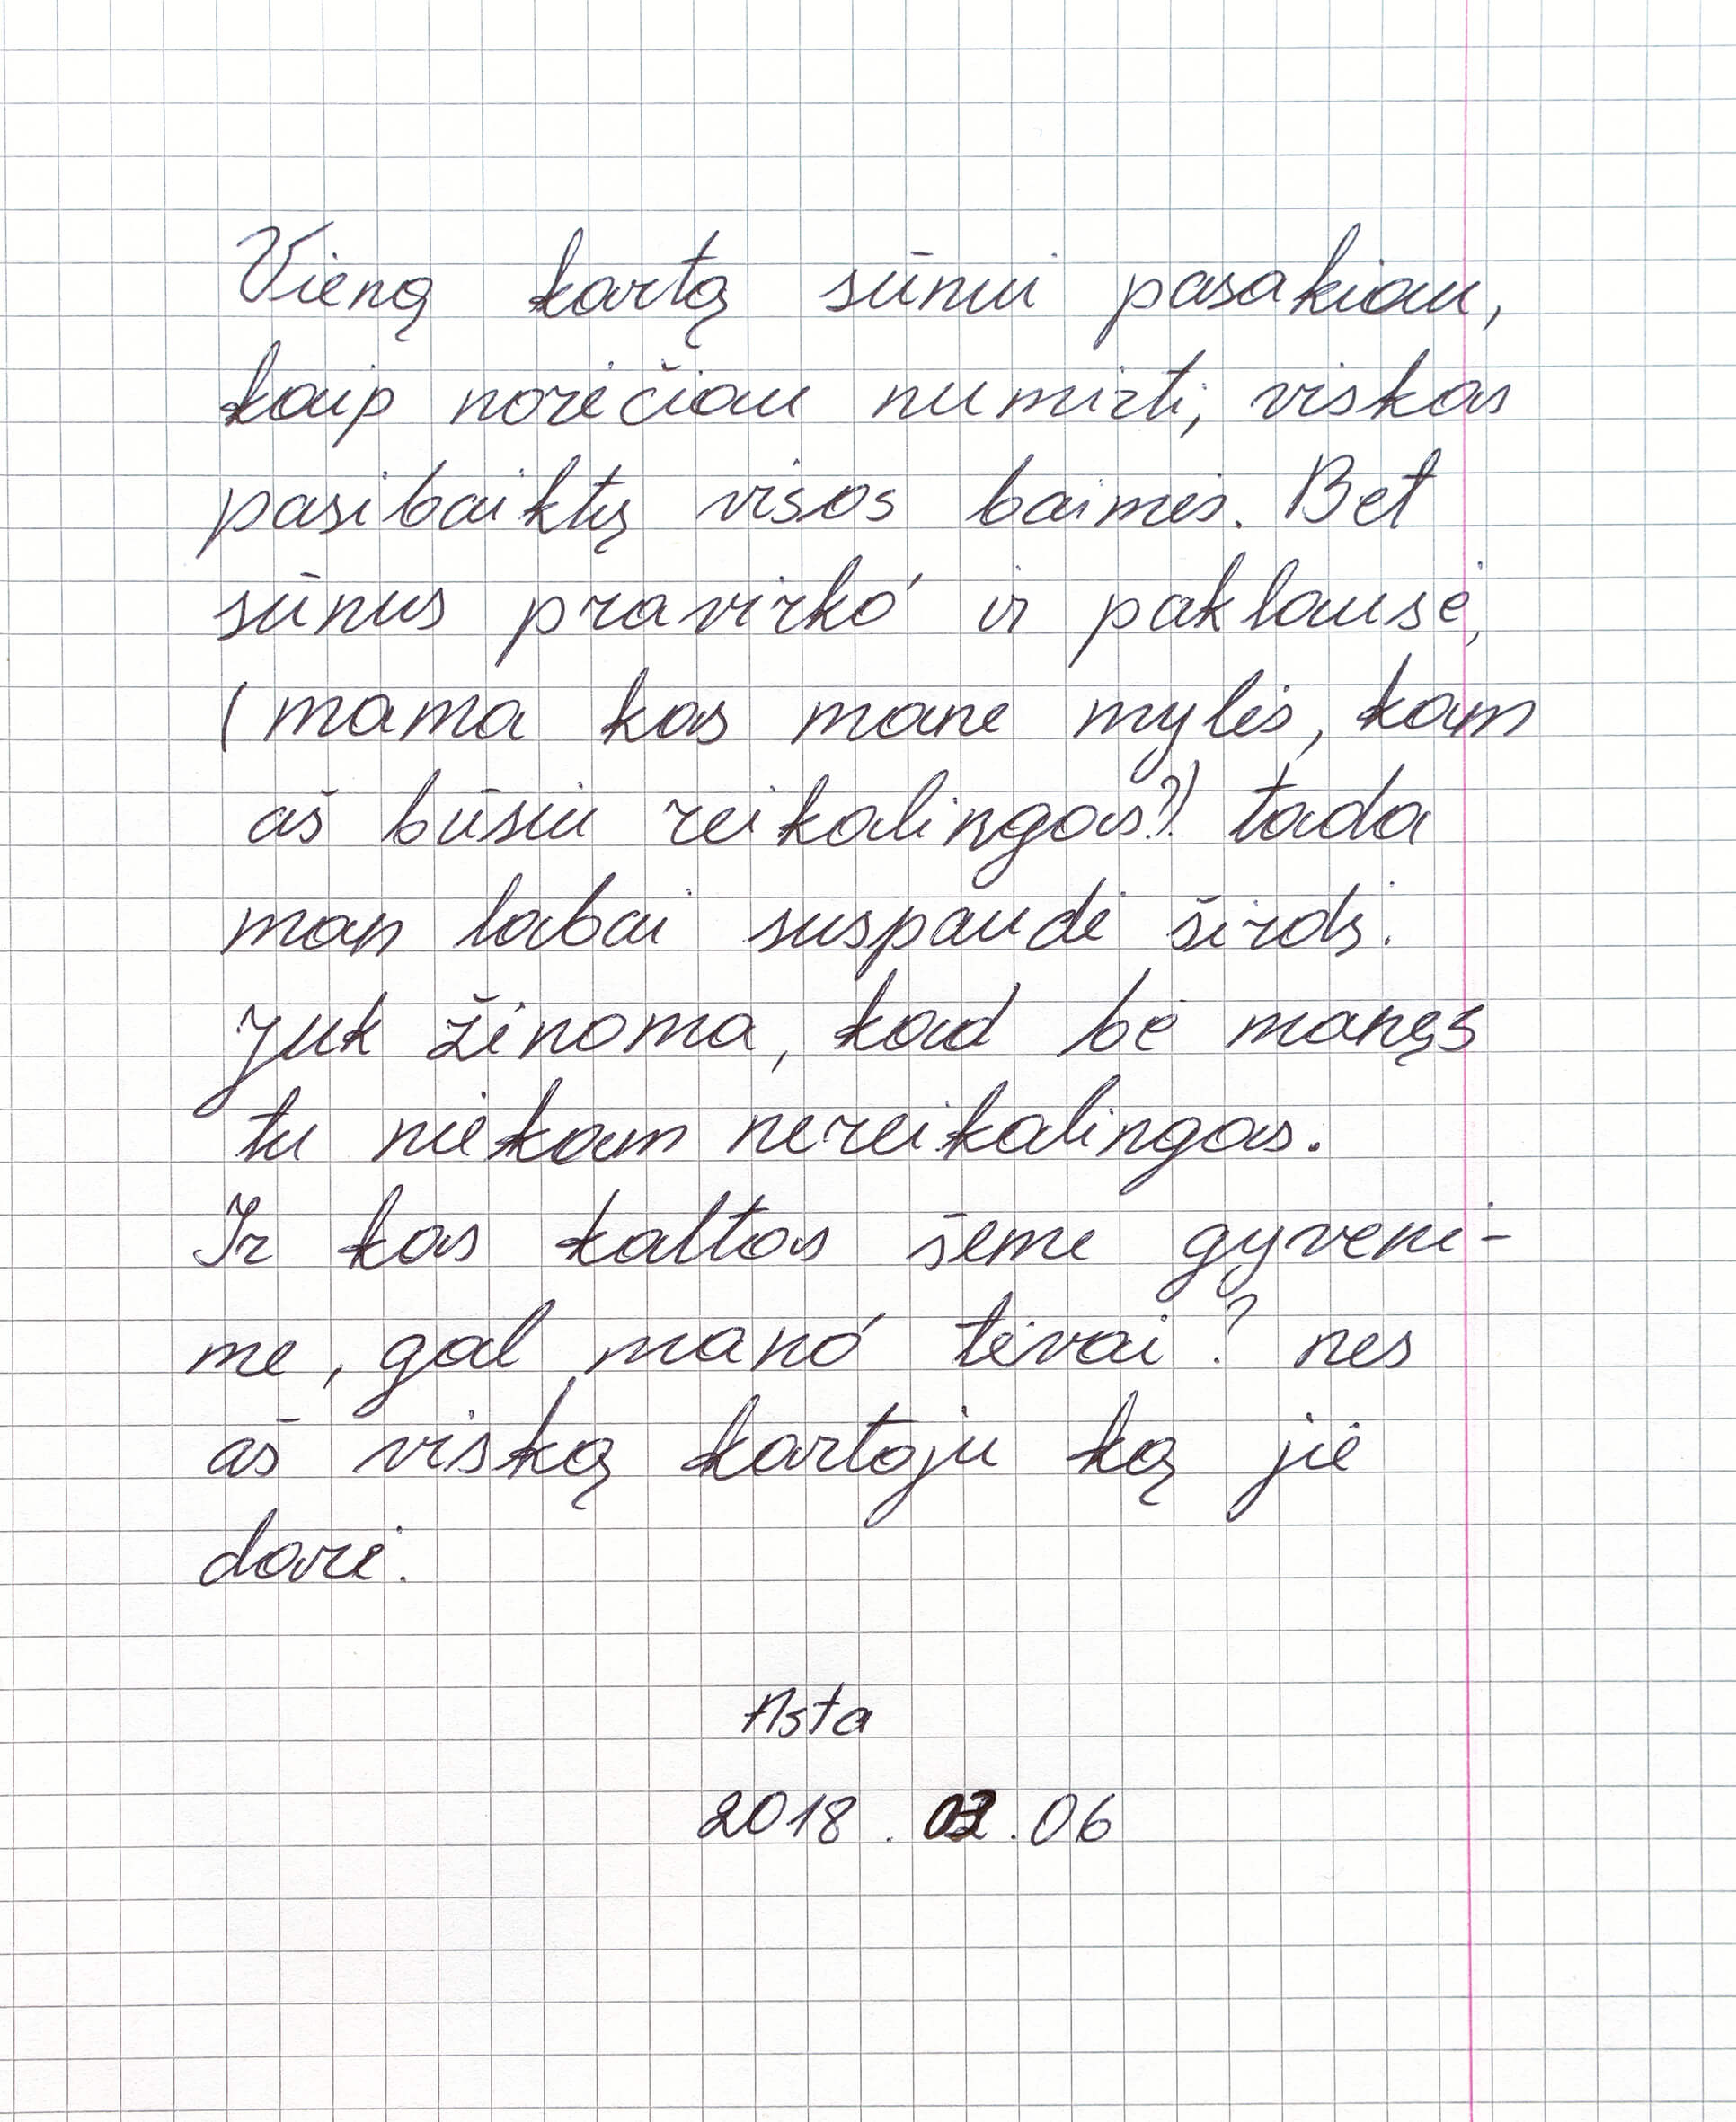 Vieną kartą sūnui pasakiau,
kaip norėčiau numirti, viskas
pasibaiktų visos baimės. Bet
sūnus pravirko ir paklausė,
(mama kas mane mylės, kam
aš būsiu reikalingas?) tada
man labai suspaudė širdį.
Juk žinoma, kad be manęs
tu niekam nereikalingas.
Ir kas kaltas šeme gyveni-
me, gal mano tėvai? nes
aš viską kartoju ką jie
darė.
Asta
2018.02.06